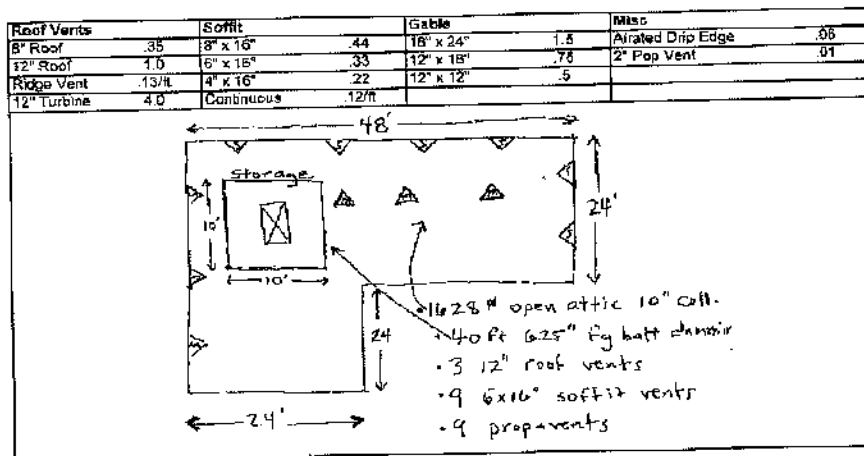 Roof Vents Soffit Gable Misc
8" Roof .35 8" x 16" .44 18" x 24" 1.5 Airated Drip Edge .06
12" Roof 1.0 6" x 16" .33 12" x 18" .75 2" Pop Vent .01
Ridge Vent .13/ft. 4" x 16" .22 12" x 12" .5
12" Turbine 4.0 Continuous .12/ft
48'
Storage
24'
10'
10'
•1628 open attic 10" cell.
24 •40 ft 6.25" fg batt
•3 12" roof vents
•9 6x16" soffit vents
24'
•9 propavents